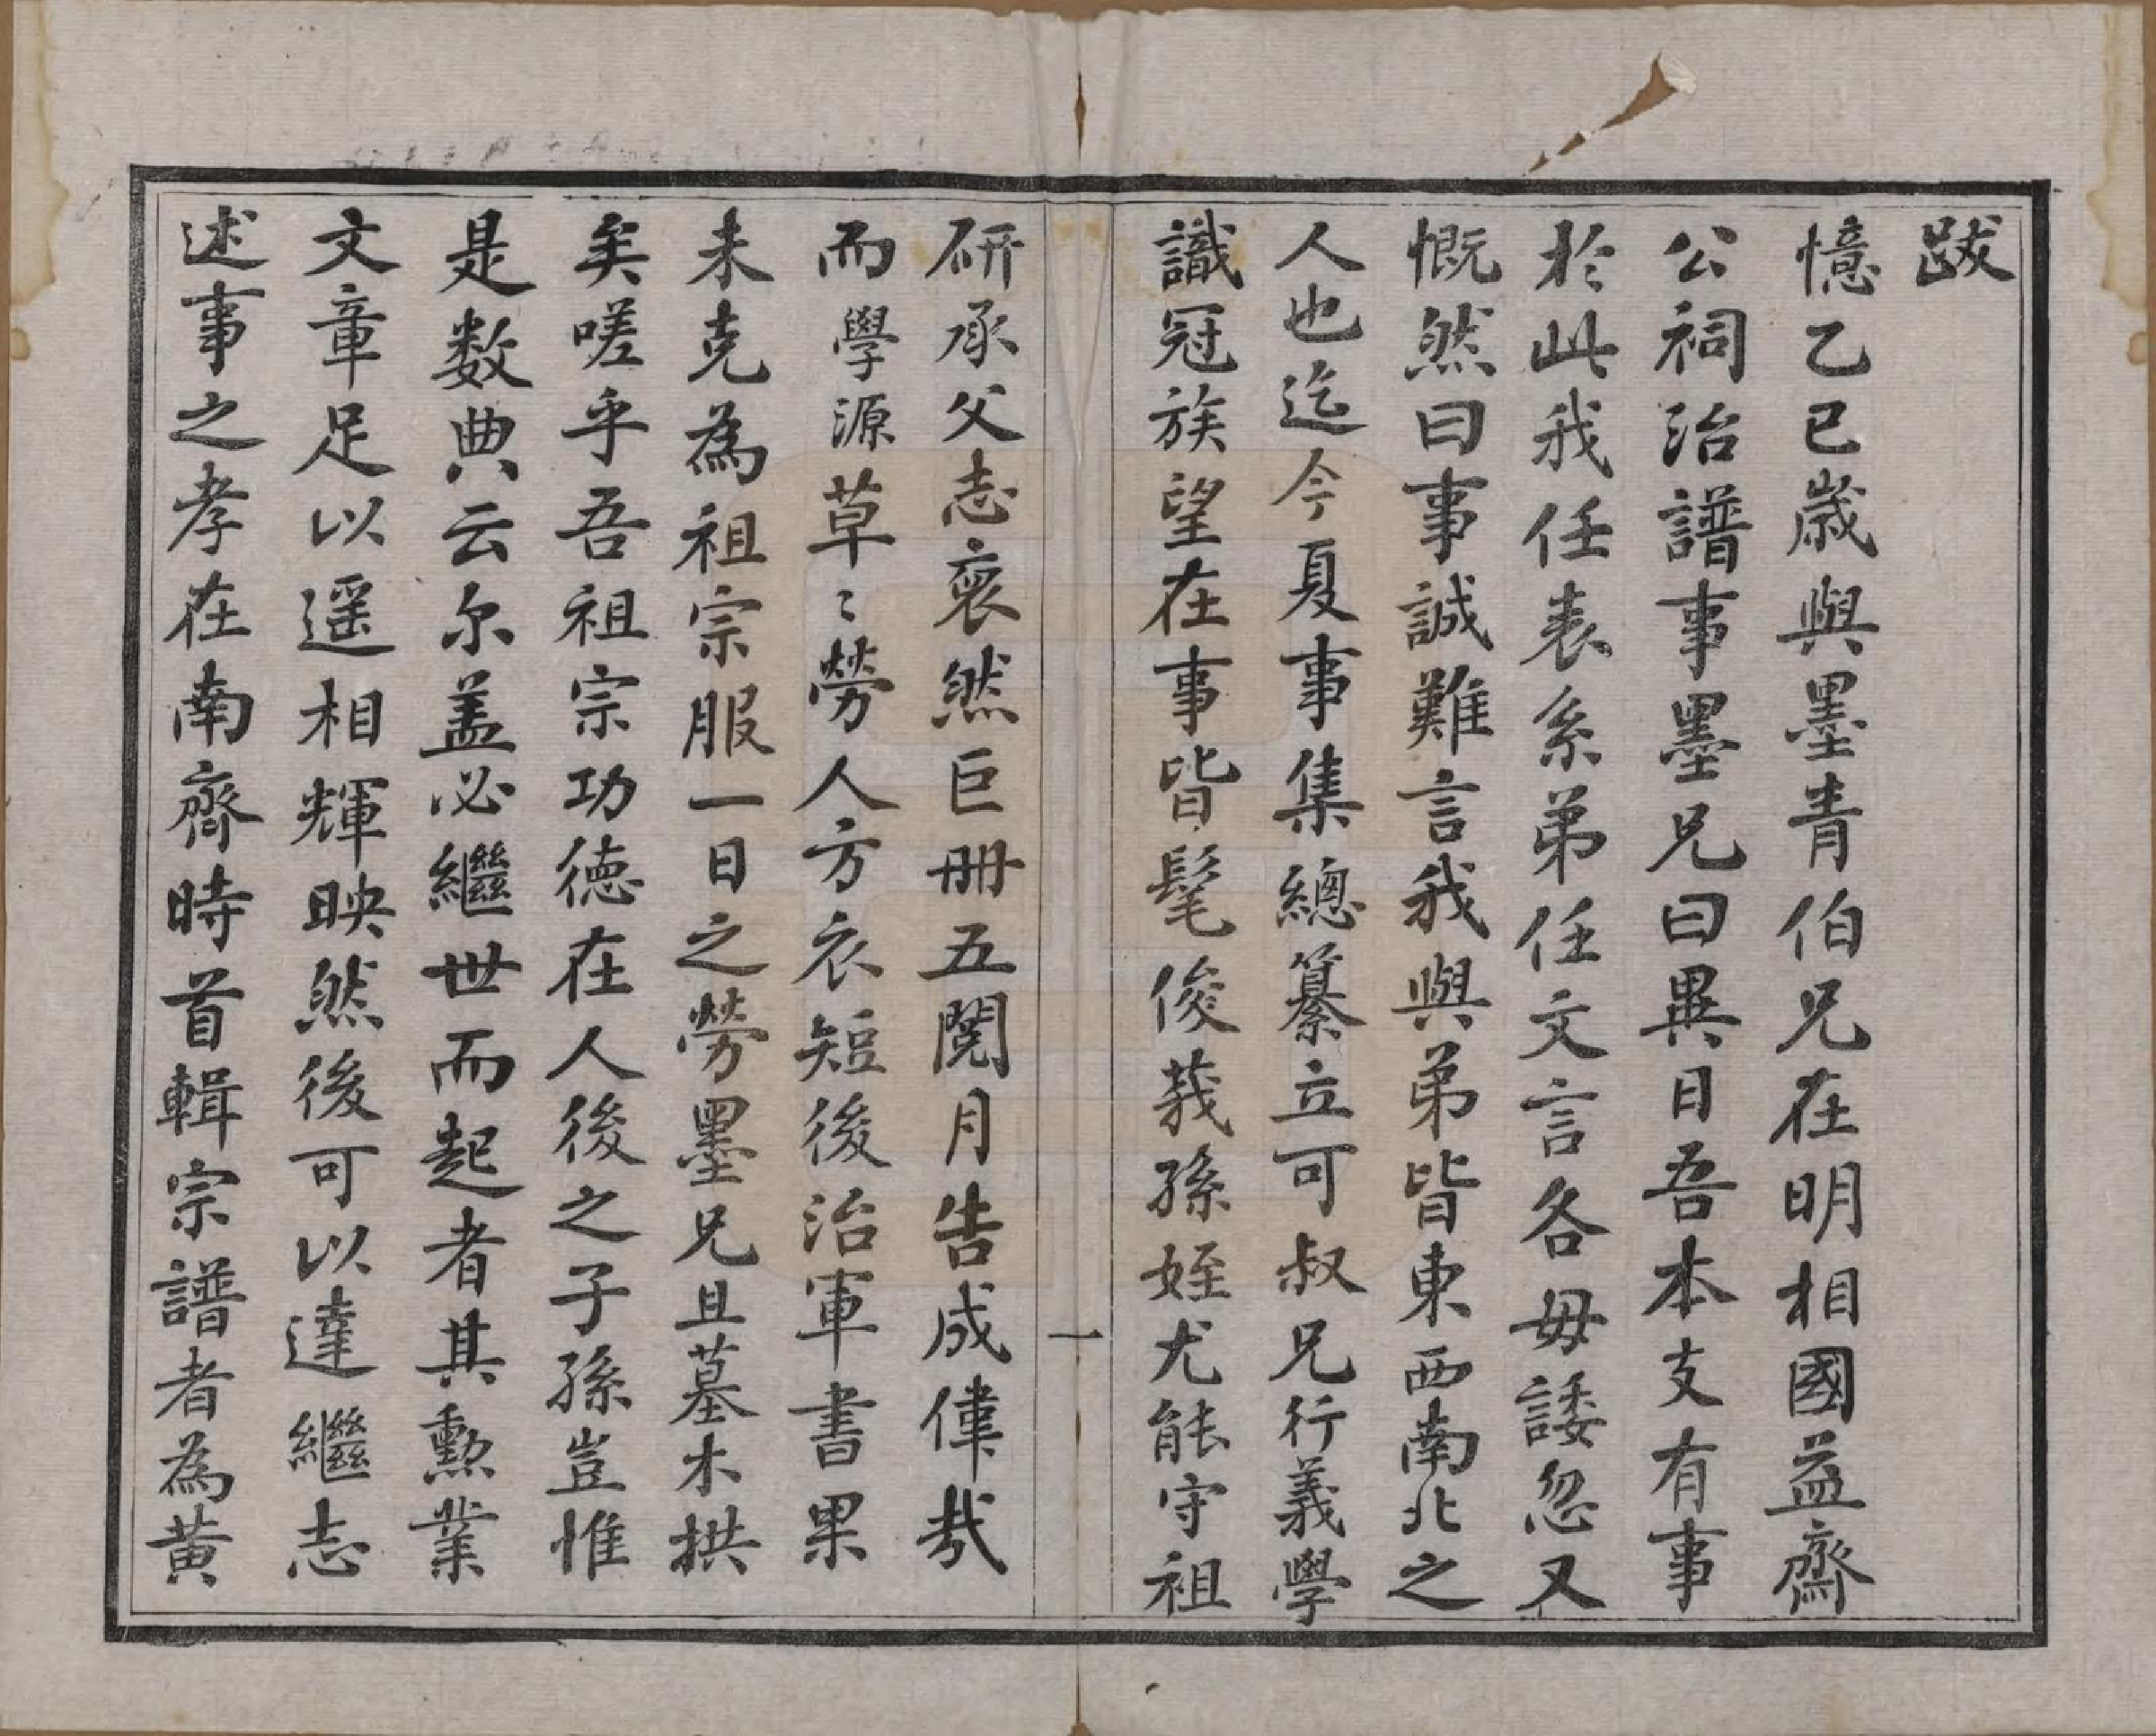 跋
憶乙已歲與墨青伯兄在明相國益齋
公祠治譜事墨兄曰異日吾本支有事
於此我任表系弟任文言各毋諉忽又
慨然曰事誠難言我與弟皆東西南北之
人也迄今夏事集總纂立可叔兄行義學
識冠族望在事皆髦俊莪孫姪尤能守祖
研承父志裒然巨冊五閱月告成偉哉
而學源草〻勞人方衣短後治軍書果
未克為祖宗服一日之勞墨兄且墓木拱
矣嗟乎吾祖宗功德在人後之子孫豈惟
是数典云尔盖必繼世而起者其勳業
文章足以遥相輝映然後可以達繼志
述事之孝在南齊時首輯宗譜者為黄
一